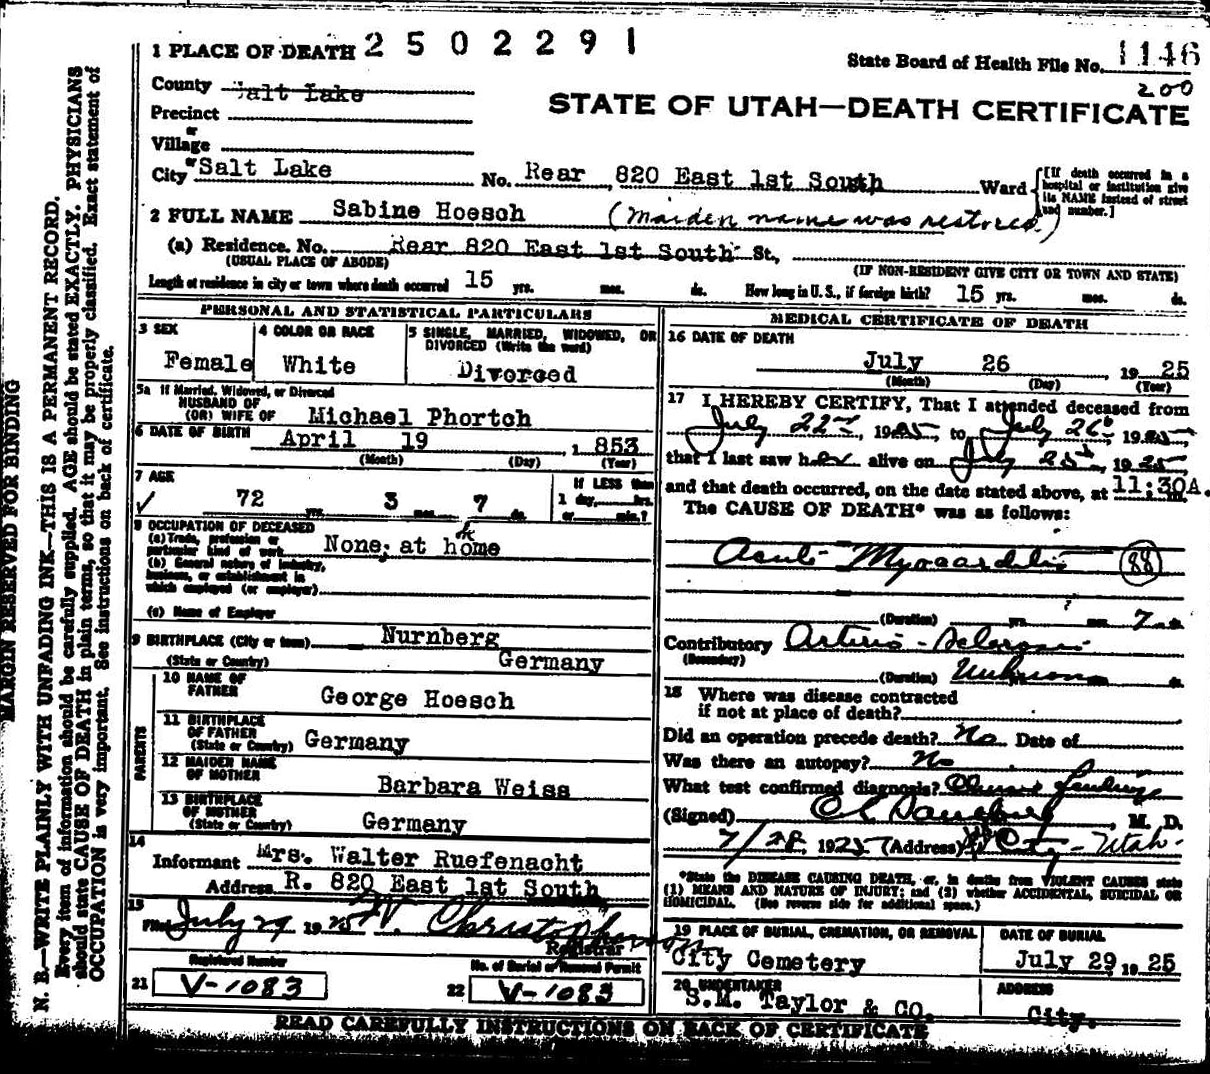 1 PLACE OF DEATH 2502291
State Board of Health File No. 1146
200
County Salt Lake
STATE OF UTAH—DEATH CERTIFICATE
Precinct
or
Village
or
City Salt Lake No. Rear 820 East 1st South Ward
[If death occurred in a hospital or institution give its NAME instead of street and number.]
2 FULL NAME Sabine Hoesch (Maiden name was restored.)
(a) Residence. No. Rear 820 East 1st South St.,
(USUAL PLACE OF ABODE) (IF NON-RESIDENT GIVE CITY OR TOWN AND STATE)
Length of residence in city or town where death occurred 15 yrs. mos. ds. How long in U. S., if foreign birth? 15 yrs. mos. ds.
PERSONAL AND STATISTICAL PARTICULARS
3 SEX
Female
4 COLOR OR RACE
White
5 SINGLE, MARRIED, WIDOWED, OR DIVORCED (Write the word)
Divorced
5a If Married, Widowed, or Divorced
HUSBAND OF
(OR) WIFE OF Michael Phortch
6 DATE OF BIRTH April 19, 1853
(Month) (Day) (Year)
7 AGE
72 yrs. 3 mos. 7 ds.
If LESS than
1 day, hrs.
or min.?
8 OCCUPATION OF DECEASED
(a) Trade, profession or
particular kind of work None; at home
(b) General nature of industry,
business, or establishment in
which employed (or employer)
(c) Name of Employer
9 BIRTHPLACE (City or town) Nurnberg
(State or Country) Germany
PARENTS
10 NAME OF
FATHER George Hoesch
11 BIRTHPLACE
OF FATHER
(State or Country) Germany
12 MAIDEN NAME
OF MOTHER Barbara Weiss
13 BIRTHPLACE
OF MOTHER
(State or Country) Germany
14
Informant Mrs. Walter Ruefenacht
Address R. 820 East 1st South
15
Filed July 29 1925 W. Christopherson
Registrar
Registered Number
21 V-1083
No. of Burial or Removal Permit
22 V-1083
MEDICAL CERTIFICATE OF DEATH
16 DATE OF DEATH
July 26, 1925
(Month) (Day) (Year)
17 I HEREBY CERTIFY, That I attended deceased from
July 22nd, 1925, to July 26, 1925
that I last saw her alive on July 25, 1925
and that death occurred, on the date stated above, at 11:30A.m.
The CAUSE OF DEATH* was as follows:
Acute Myocarditis 88
(Duration) yrs. mos. 7 ds.
Contributory Arterio-Sclerosis
(Secondary)
(Duration) Unknown ds.
18 Where was disease contracted
if not at place of death?
Did an operation precede death? No Date of
Was there an autopsy? No
What test confirmed diagnosis?
(Signed) M. D.
7/28, 1925 (Address) City - Utah.
*State the DISEASE CAUSING DEATH, or, in deaths from VIOLENT CAUSES state
(1) MEANS AND NATURE OF INJURY; and (2) whether ACCIDENTAL, SUICIDAL OR
HOMICIDAL. (See reverse side for additional space.)
19 PLACE OF BURIAL, CREMATION, OR REMOVAL
City Cemetery
DATE OF BURIAL
July 29, 1925
20 UNDERTAKER
S.M. Taylor & CO.
ADDRESS
City.
READ CAREFULLY INSTRUCTIONS ON BACK OF CERTIFICATE
MARGIN RESERVED FOR BINDING
N. B.—WRITE PLAINLY WITH UNFADING INK—THIS IS A PERMANENT RECORD.
Every item of information should be carefully supplied. AGE should be stated EXACTLY. PHYSICIANS
should state CAUSE OF DEATH in plain terms, so that it may be properly classified. Exact statement of
OCCUPATION is very important. See instructions on back of certificate.